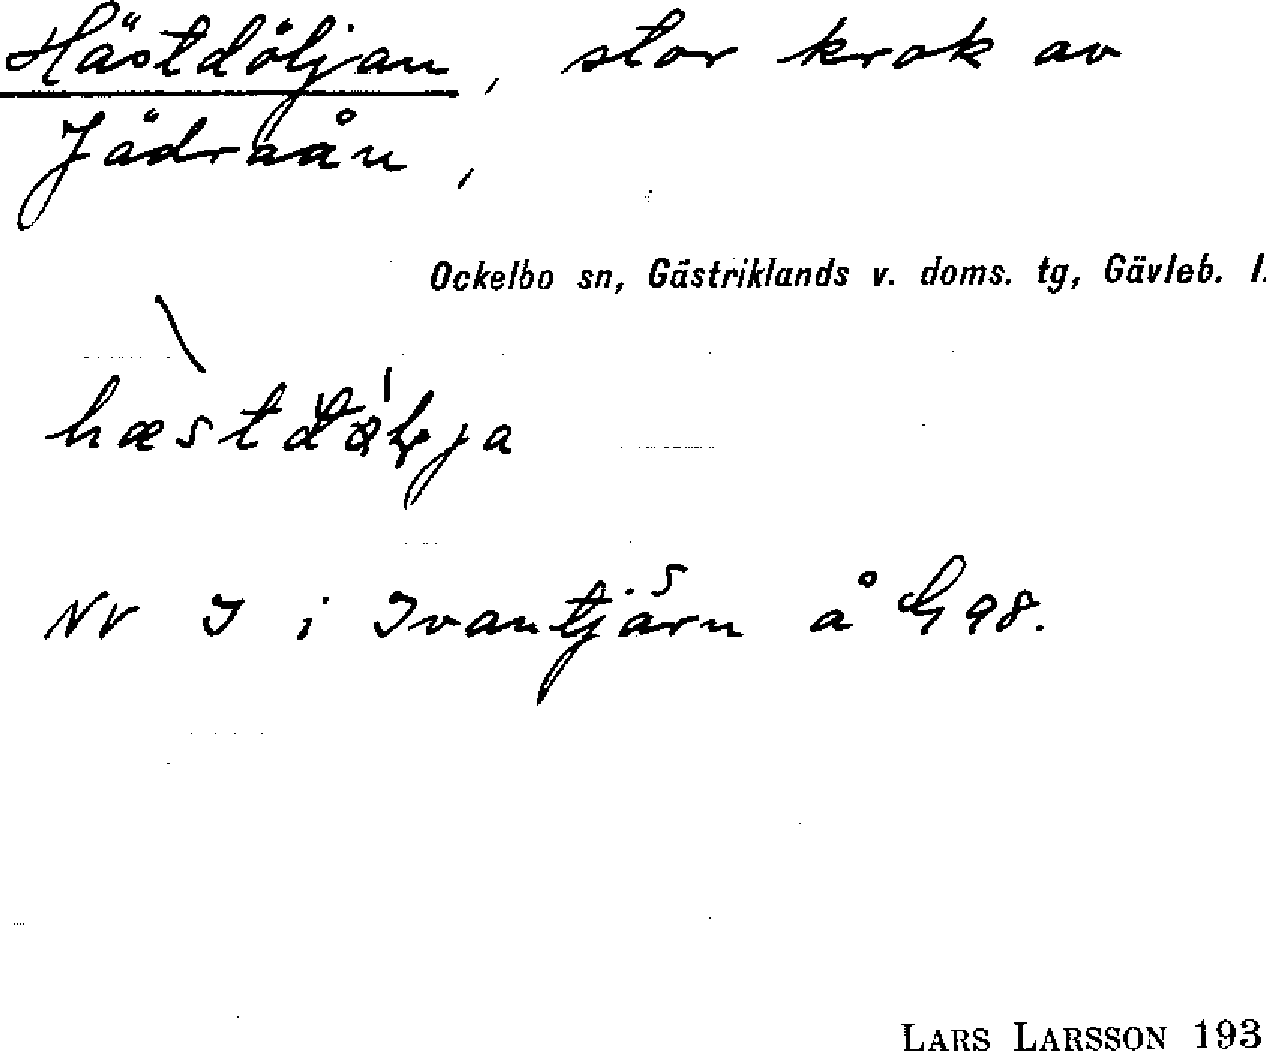 Hästdöljan, stor krok av
Jädraån,
Ockelbo sn, Gästriklands v. doms. tg, Gävleb. l.
NV J i Ivantjärn å G 98.
LARS LARSSON 193